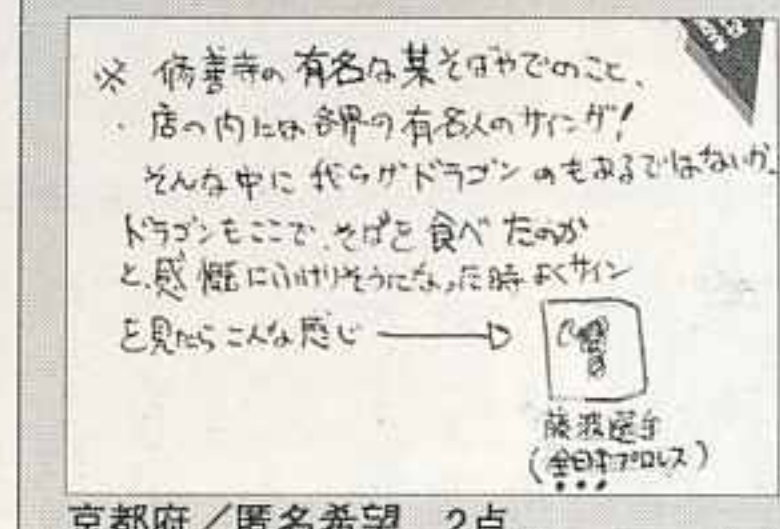 ※ 修善寺の有名な某そばやでのこと、
・店の内には各界の有名人のサインが!
そんな中に我らがドラゴンのもあるではないか。
ドラゴンもここで、そばを食べたのか
と、感慨にふけりそうになった時よくサイン
を見たらこんな感じ
藤波選手
(全日本プロレス)
京都府/匿名希望 2点